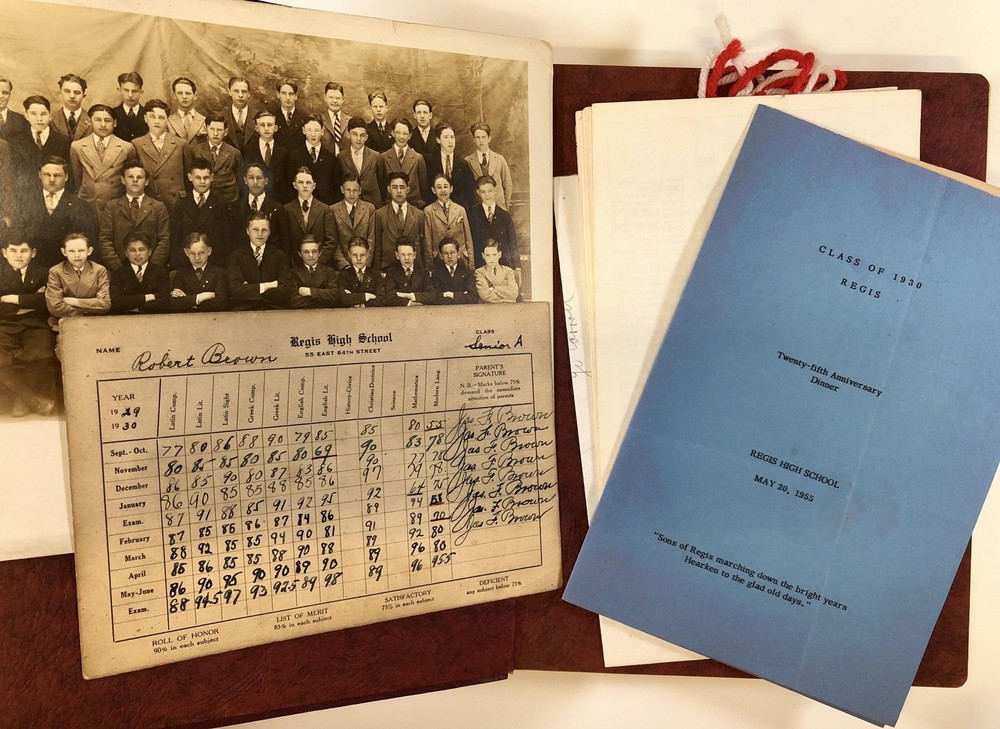 NAME Robert Brown
Regis High School
55 EAST 84TH STREET
CLASS
Senior A
YEAR
19 29
19 30
Latin Comp.
Latin Lit.
Latin Sight
Greek Comp.
Greek Lit.
English Comp.
English Lit.
History-Civics
Christian Doctrine
Science
Mathematics
Modern Lang.
PARENT'S
SIGNATURE
N.B.—Marks below 75%
demand the immediate
attention of parents
Sept. - Oct. 77 80 86 88 90 79 85 85 80 55 Jas F. Brown
November 80 85 85 80 85 80 69 90 83 78 Jas. F. Brown
December 86 85 90 80 87 83 86 90 77 78 Jas F. Brown
January 86 90 85 85 88 85 86 97 79 78 Jas. F. Brown
Exam. 87 91 88 85 91 92 95 92 64 75 Jas F. Brown
February 87 85 86 86 87 84 86 89 94 58 Jas. F. Brown
March 88 92 85 85 94 90 81 91 89 70 Jas. F. Brown
April 85 86 85 85 88 90 88 89 92 80 Jas F. Brown
May-June 86 90 95 90 90 89 90 89 96 80
Exam. 88 94.5 97 93 92.5 89 98 96 95.5
ROLL OF HONOR
90% in each subject
LIST OF MERIT
85% in each subject
SATISFACTORY
75% in each subject
DEFICIENT
any subject below 75%
CLASS OF 1930
REGIS
Twenty-fifth Anniversary
Dinner
REGIS HIGH SCHOOL
MAY 20, 1955
"Sons of Regis marching down the bright years
Hearken to the glad old days."